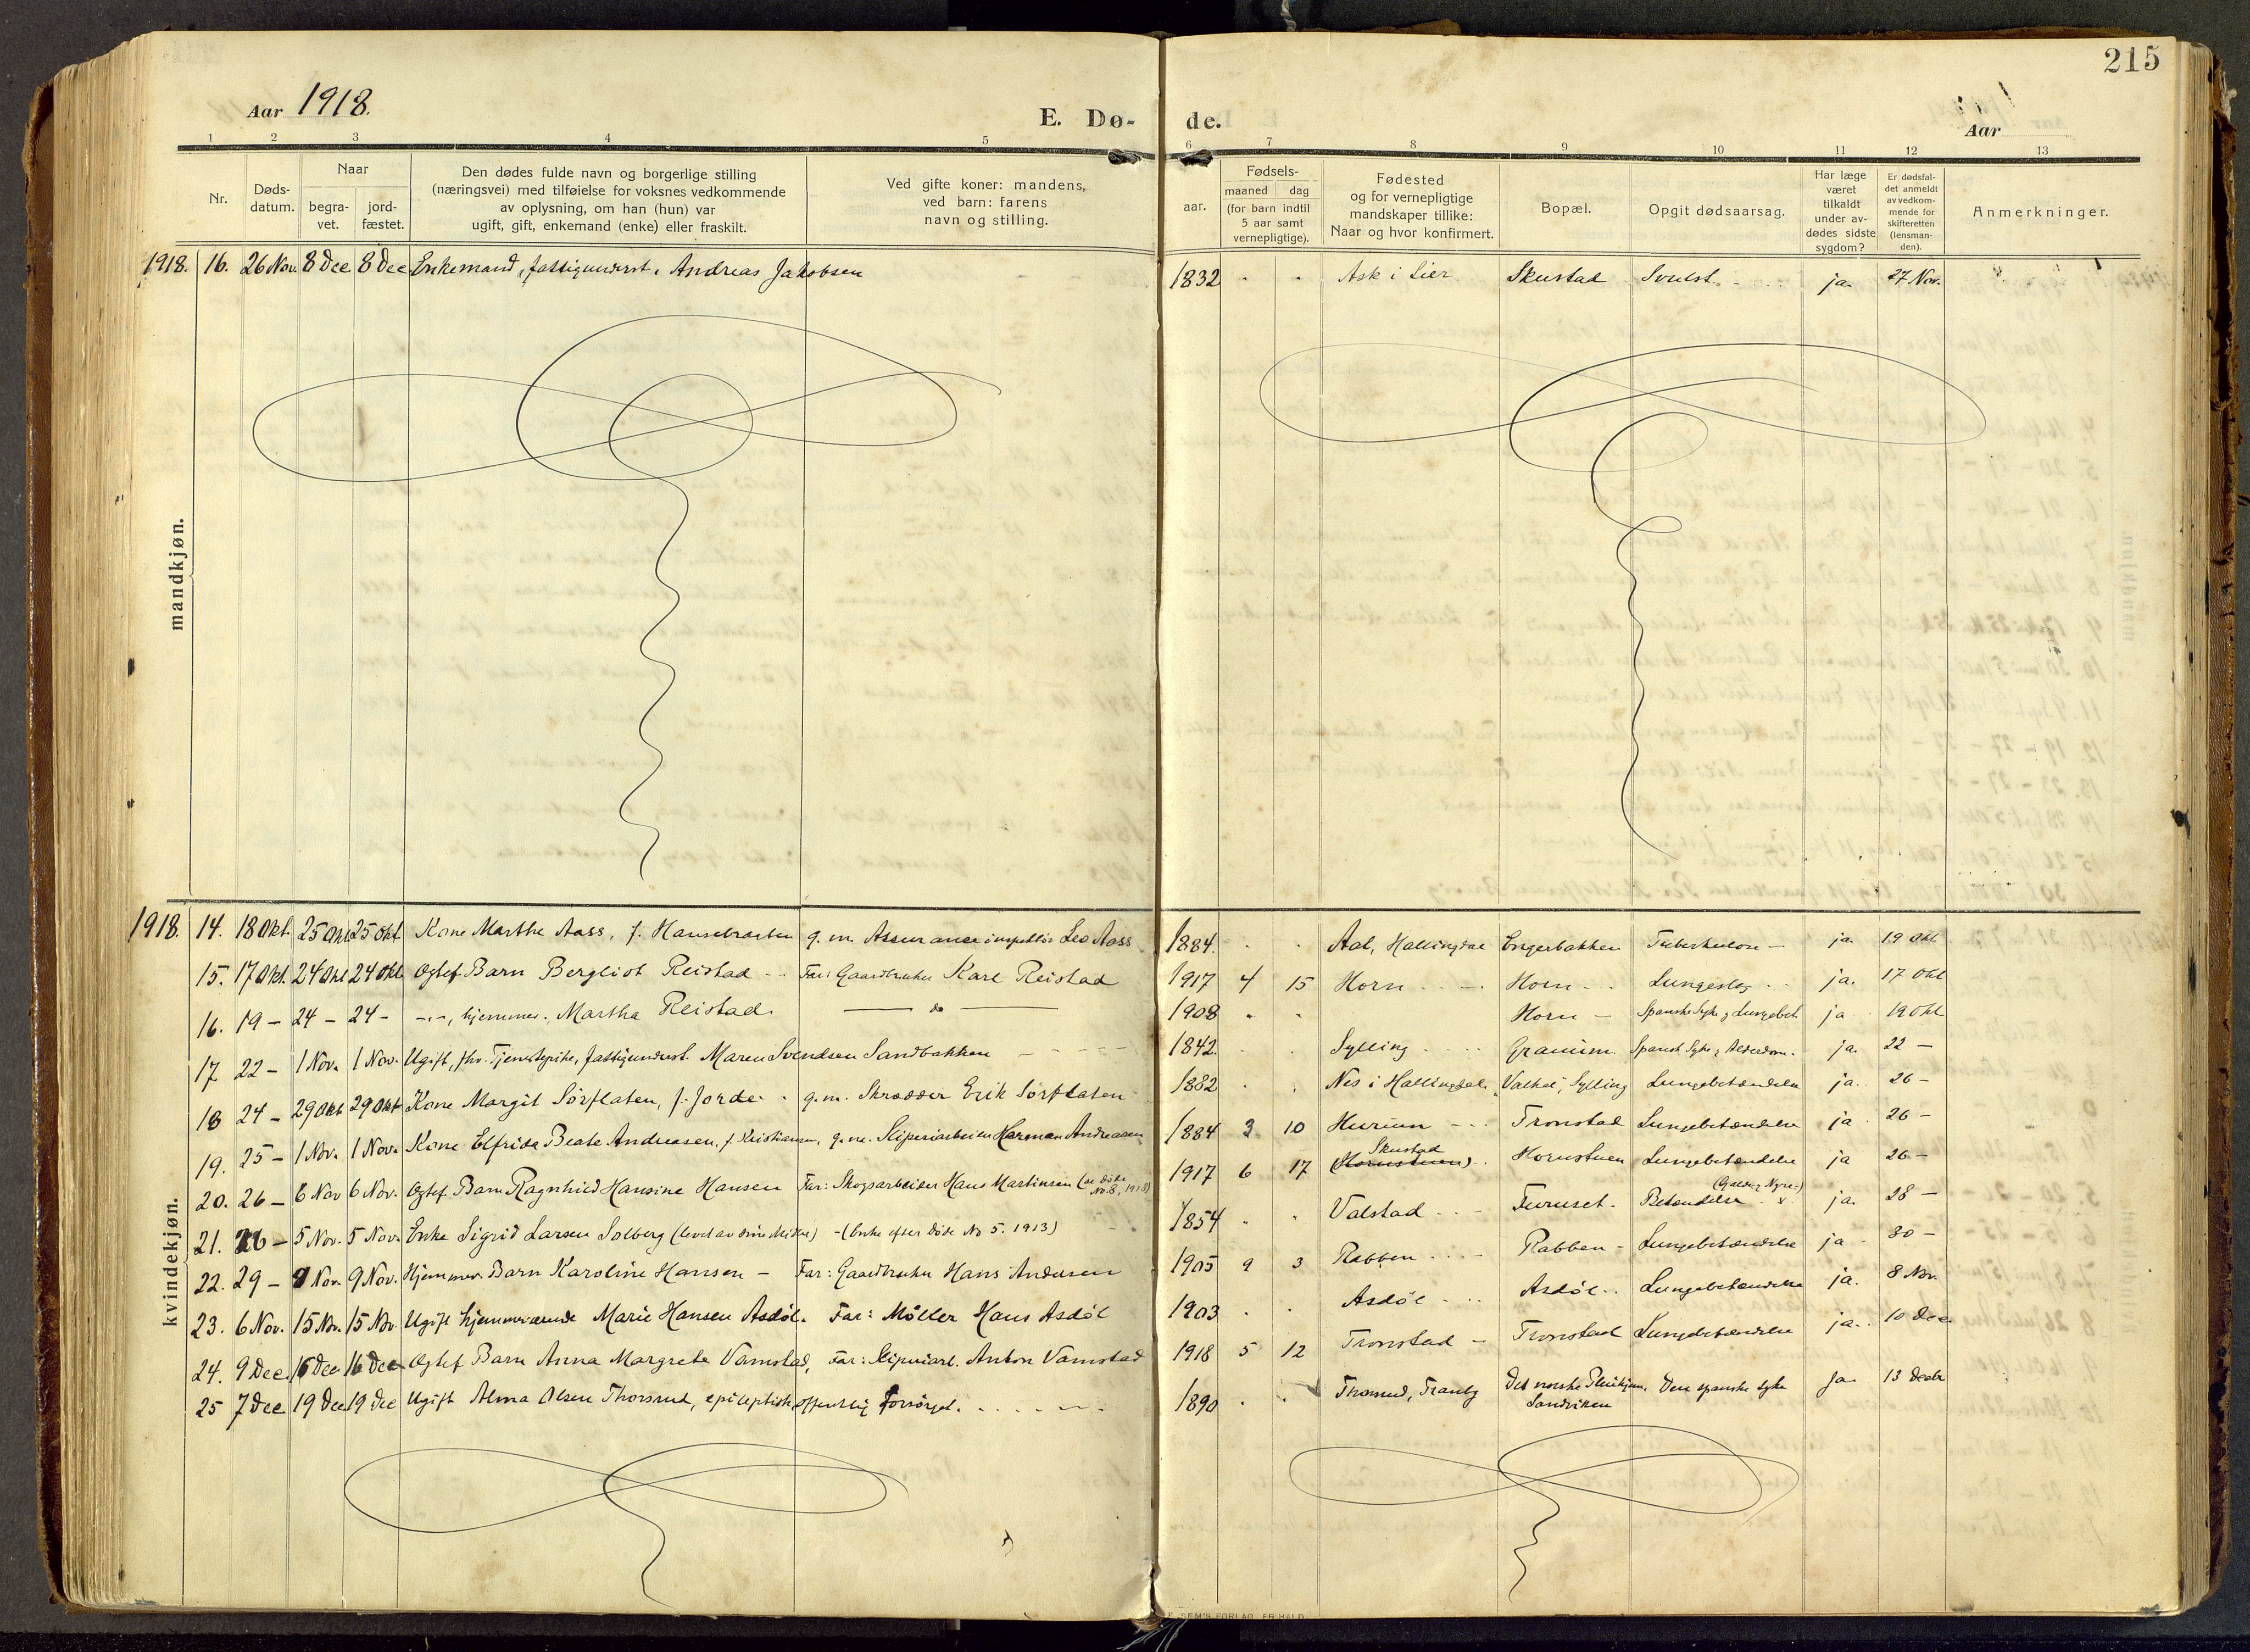 215
Aar 1918.
E. Dø- de.
Aar
1 2 3 4 5 6 7 8 9 10 11 12 13
Nr.
Døds-
datum.
Naar
begra-
vet.
jord-
fæstet.
Den dødes fulde navn og borgerlige stilling
(næringsvei) med tilføielse for voksnes vedkommende
av oplysning, om han (hun) var
ugift, gift, enkemand (enke) eller fraskilt.
Ved gifte koner: mandens,
ved barn: farens
navn og stilling.
Fødsels-
aar.
maaned dag
(for barn indtil
5 aar samt
vernepligtige).
Fødested
og for vernepligtige
mandskaper tillike:
Naar og hvor konfirmert.
Bopæl.
Opgit dødsaarsag.
Har læge
været
tilkaldt
under av-
dødes sidste
sygdom?
Er dødsfal-
det anmeldt
av vedkom-
mende for
skifteretten
(lensman-
den).
Anmerkninger.
mandkjøn.
1918. 16. 26 Nov. 8 Dec 8 Dec Enkemand, fattigunderst. Andreas Jakobsen 1832 - - Ask i Lier Skustad Svulst. ja. 27 Nov.
kvindekjøn.
1918. 14. 18 Okt. 25 Okt 25 Okt Kone Marthe Aass, f. g. m. Assuranceinspektør Leo Aass 1884. - - Aal, Hallingdal Engerbakken Tuberkulose - ja 19 Okt
15. 17 Okt. 24 Okt 24 Okt Egtef. Barn Bergliot Reistad - - Far: Gaardbruker Karl Reistad 1917 4 15 Horn - - Horn - - Lungeslag - - ja. 17 Okt
16. 19 - 24 - 24 - -"-, hjemmev., Martha Reistad. do 1908 - - Horn - Spanske Syke & Lungebet. ja 19 Okt
17 22 - 1 Nov. 1 Nov. Ugift, fhv. Tjenestepike, fattigunderst. Maren Svendsen Sandbakken 1842. - - Sylling Granum. Spansk Syke & Alderdom. ja. 22 -
18 24 - 29 Okt 29 Okt Kone Margit Sørflaten, f. Jorde. g. m. Skrædder Erik Sørflaten 1882 - - Nes i Hallingdal. Valhal, Sylling Lungebetændelse ja. 26 -
19. 25 - 1 Nov. 1 Nov. Kone Elfrida Beate Andreasen, f. Kristiansen, g. m. Sliperiarbeider Herman Andreasen 1884 3 10 Hurum - - Tronstad Lungebetændelse ja 26 -
20. 26 - 6 Nov 6 Nov. Egtef. Barn Ragnhild Hansine Hansen Far: Skogsarbeider Hans Martinsen (se døde No. 8, 1918) 1917 6 17 Skustad (Hornstuen). Hornstuen Lungebetændelse ja 26 -
21. 26 - 5 Nov. 5 Nov. Enke Sigrid Larsen Solberg (levet av sine Midler) - (Enke efter døde No 5. 1913) 1854 - - Valstad - - Furuset. Betændelse (Galde & Nyre-) ja. 28 -
22. 29 - 9 Nov. 9 Nov. Hjemmev. Barn Karoline Hansen - Far: Gaardbruker Hans Andersen 1905 9 3 Rabben - - Rabben - Lungebetændelse ja 30 -
23. 6 Nov. 15 Nov. 15 Nov. Ugift hjemmeværende Marie Hansen Asdøl. Far: Møller Hans Asdøl 1903 - - Asdøl - - Asdøl - Lungebetændelse ja. 8 Nov.
24. 9 Dec. 16 Dec 16 Dec Egtef Barn Anna Margrete Vamstad, Far: Sliperiarb. Anton Vamstad 1918 5 12 Tronstad - Tronstad Lungebetændelse ja. 10 Dec
25 7 Dec 19 Dec 19 Dec Ugift Alma Olsen Thorsrud, epileptisk, offentlig forsørget. 1890 - - Thorsrud, Tranby Det norske Sandviken Den spanske syke Ja 13 Decbr